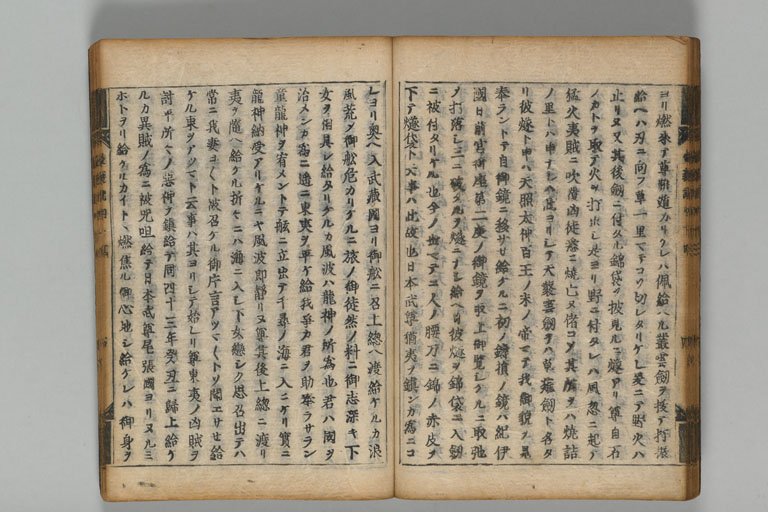 ヨリ燃来テ草難遁カリケレハ佩給ヘル叢雲劔ヲ援テ打振
給ヘハ刃ニ向フ草一里マテコソ切レタリケレ是ニテ野火ハ
止リヌ又其後劔ニ付タル錦袋ヲ披見ルニ燧アリ尊自石
ノカトヲ取テ火ヲ打出シ是ヨリ野ニ付タレハ風忽ニ起テ
猛火夷賊ニ吹覆凶徒悉ニ焼亡メ偖コソ其所ヲハ焼詰
ノ里トハ申ナレ此ヨリシテ天叢雲劔ヲハ草薙劔ト名タ
リ彼燧ト申ハ天照太神百王ノ末ノ帝マテ我御貌ヲ見
奉ラントテ自御鏡ニ移サセ給ケルニ初ノ鑄損ノ鏡ハ紀伊
國日前宮御座第二度ノ御鏡ヲ取上御覧シケルニ取弛
ノ打落シ三ニ破タルヲ燧ニナシ給ヘリ彼燧ヲ錦袋ニ入劔
ニ被付タリケル也今ノ世マテニ人ノ腰刀ニ錦ノ赤皮ヲ
下テ燧袋ト云事ハ此故也日本武尊猶夷ヲ鎮ンカ為ニコ
レヨリ奥ヘ入武蔵國ヨリ御舩ニ召上總ヘ渡給ケルカ浪
風荒ク御舩危カリケルニ旅ノ御徒然ノ料ニ御志深キ下
女ヲ相具シ給タリケルカ風波ハ龍神ノ所為也君ハ國ヲ
治メンカ為ニ遥ニ東夷ヲ平ケ給我争カ君ヲ助奉ラサラン
龍神ヲ宥メントテ舩ニ立出テ千尋ノ海ニ入ニケリ實ニ
龍神納受アリケルニヤ風波即静リヌ尊其後上總ニ渡リ
夷ヲ随ヘ給ケル折々ニハ海ニ入シ下女戀シク思召出テハ
常ニ我妻コヽト被召ケル御片言アツマトソ聞エサセ給
ケル東ヲアツマト云事ハ其ヨリシテ始レリ尊東夷ノ凶賊ヲ
討平所々ノ悪神ヲ鎮給テ同四十三年癸丑ニ歸上給ケ
ルカ異賊ノ為ニ被咒咀給テ日本武尊尾張國ヨリヌルミ
ホトヲリ給ケルカイトヽ燃焦ル御心地シ給ケレハ御身ヲ